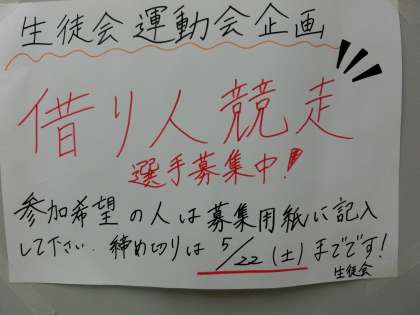 生徒会 運動会企画
借り人競走
選手募集中!
参加希望の人は募集用紙に記入
して下さい. 締め切りは 5/22(土)までです!
生徒会